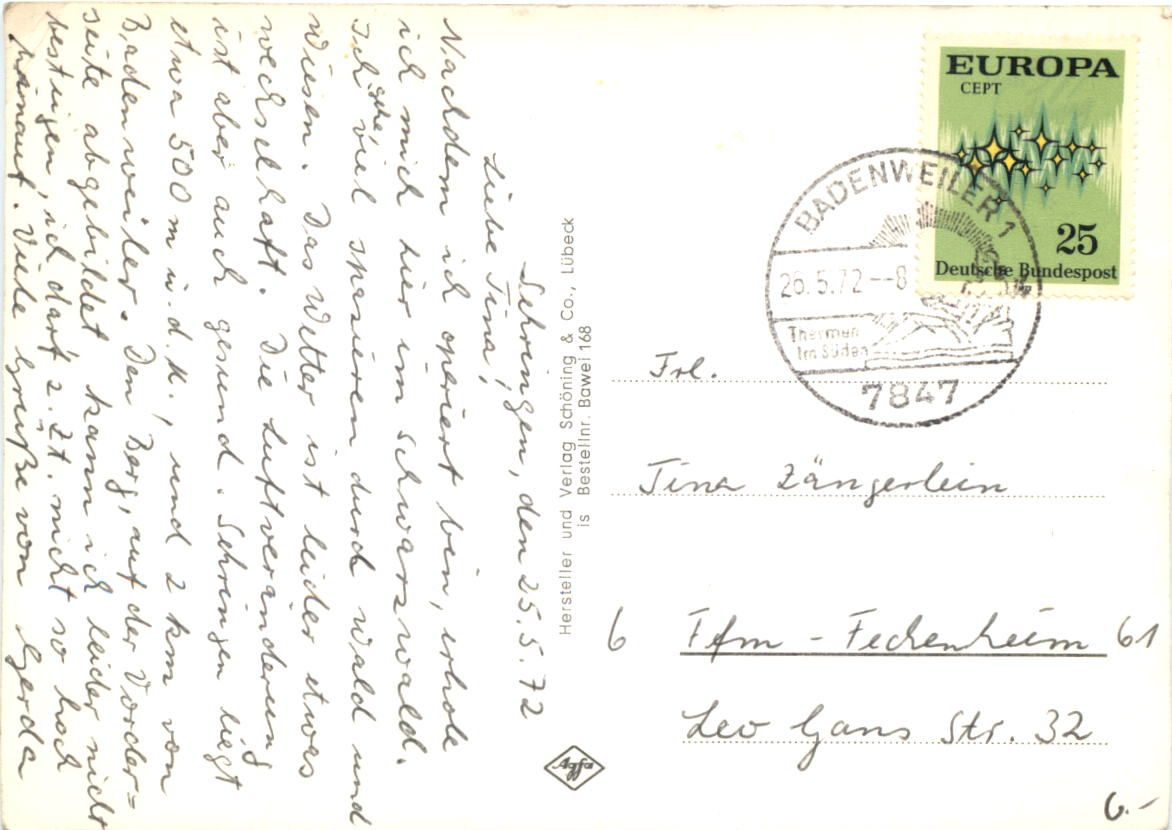 Sehringen, den 25.5.72
Liebe Tina,
Nachdem ich operiert bin, erhole
ich mich hier im Schwarzwald.
Ich gehe viel spazieren durch Wald und
Wiesen. Das Wetter ist leider etwas
wechselhaft. Die Luftveränderung
ist aber auch gesund. Sehringen liegt
etwa 500 m ü.d.M., und 2 km von
Badenweiler. Den Berg, auf der Vorder=
seite abgebildet kann ich leider nicht
besteigen, ich darf z.Zt. nicht so hoch
hinauf. Viele Grüße von Gerda
Hersteller und Verlag Schöning & Co., Lübeck
is Bestellnr. Bawei 168
Agfa
EUROPA
CEPT
25
Deutsche Bundespost
BADENWEILER 1
26.5.72--8
Thermen
im Süden
7847
Frl.
Tina Zängerlein
6 Ffm - Fechenheim 61
Leo Gans Str. 32
6.-